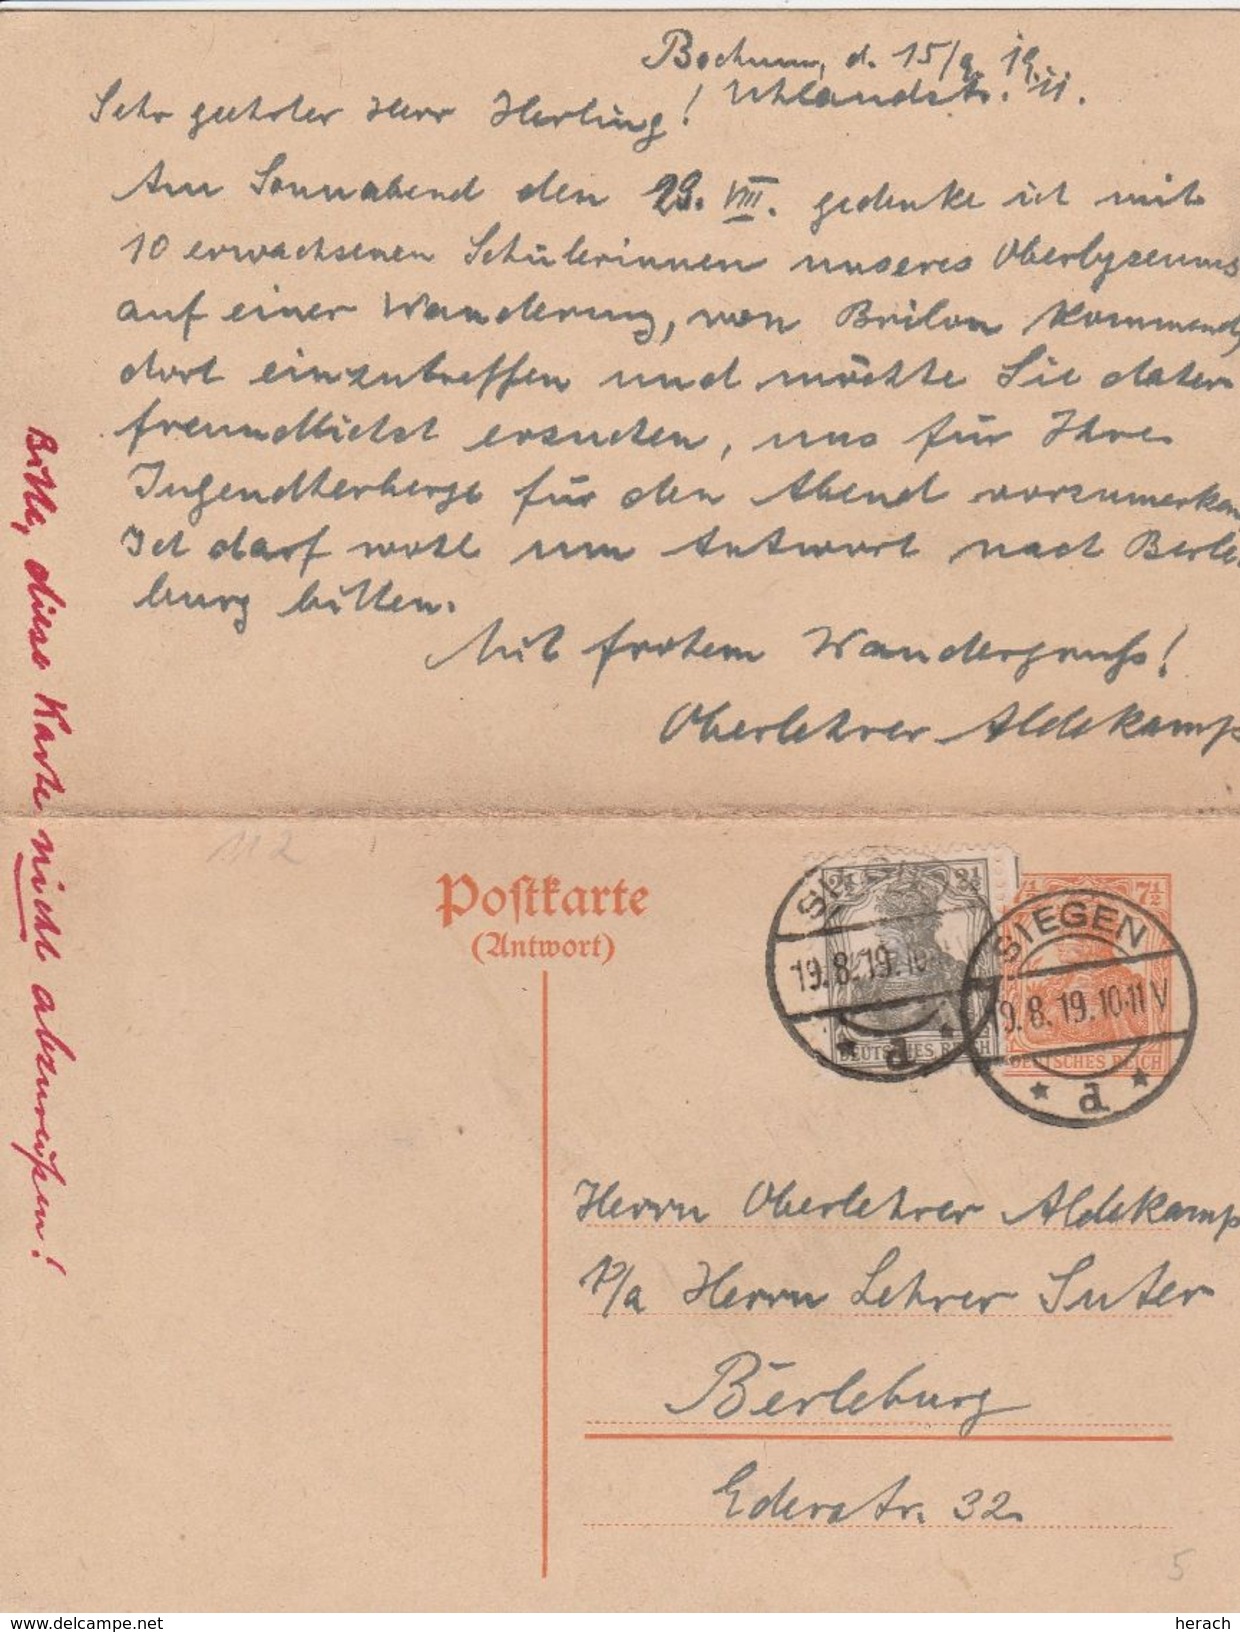 Bochum, d. 15/8. 19.
Uhlandstr. 11.
Sehr geehrter Herr Herling!
Am Sonnabend den 23. VIII. gedenke ich mit
10 erwachsenen Schülerinnen unseres Oberlyzeums
auf einer Wanderung, von Brilon kommend,
dort einzutreffen und möchte Sie daher
freundlichst ersuchen, uns für Ihre
Jugendherberge für den Abend vorzumerken.
Ich darf wohl um Antwort nach Berle-
burg bitten.
Mit frohem Wandergruß!
Oberlehrer Aldekamp
Bitte, diese Karte nicht abzureißen!
112
Postkarte
(Antwort)
2½ 2½
7½ 7½
SIEGEN
19.8.19.10
d
DEUTSCHES REICH
SIEGEN
19.8.19.10-11V
d
DEUTSCHES REICH
Herrn Oberlehrer Aldekamp
p/a Herrn Lehrer Suter
Berleburg
Ederstr. 32.
5
www.delcampe.net
herach